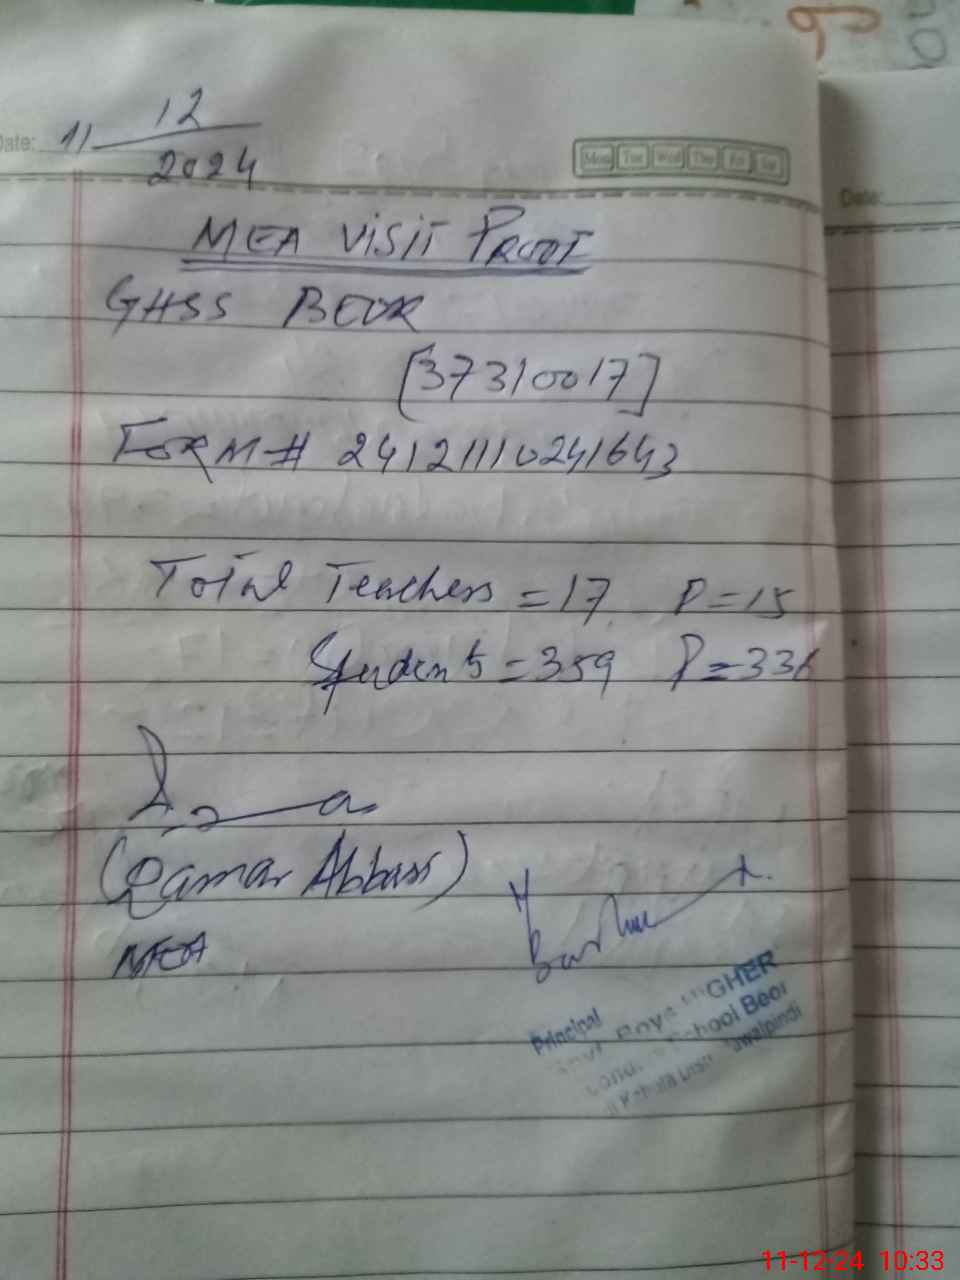 Date: 11/12/2024
Mon Tue Wed Thu Fri Sat
Date:
MEA VISIT PROOF
GHSS BEOR
[37310017]
FORM # 241211110241643
Total Teachers = 17 P=15
Students = 359 P=33
(Qamar Abbasi)
MEA
Principal
Govt. Boys HIGHER
School Beor
Rawalpindi
11-12-24 10:33